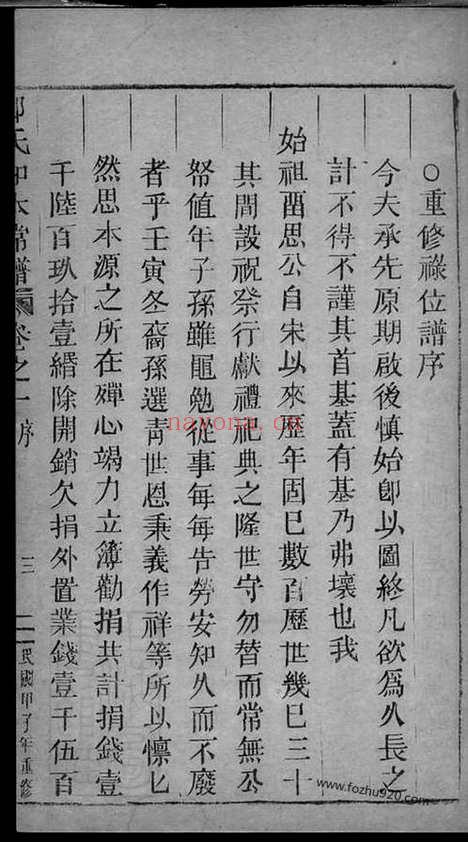 ○重修祿位譜序
今夫承先原期啟後慎始即以圖終凡欲爲久長之
計不得不謹其首基蓋有基乃弗壞也我
始祖酉思公自宋以來歷年固已數百歷世幾已三十
其間設祝祭行獻禮祀典之隆世守勿替而常無公
帑值年子孫雖黽勉從事每每告勞安知久而不廢
者乎壬寅冬裔孫選青世恩秉義作祥等所以懔匕
然思本源之所在殫心竭力立簿勸捐共計捐錢壹
千陸百玖拾壹緡除開銷欠捐外置業錢壹千伍百
氏 常譜 卷之一 序 三 民國甲子年重修
nayona.cn
www.fozhu920.com